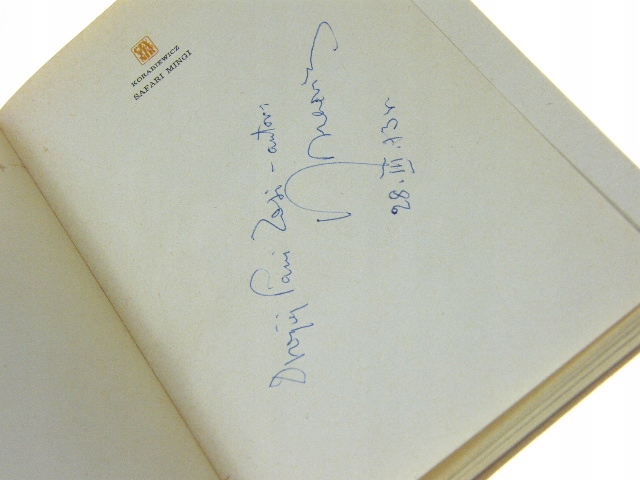 KORABIEWICZ
SAFARI MINGI
Drogiej Pani Zosi - autor:
28.III.73 r.